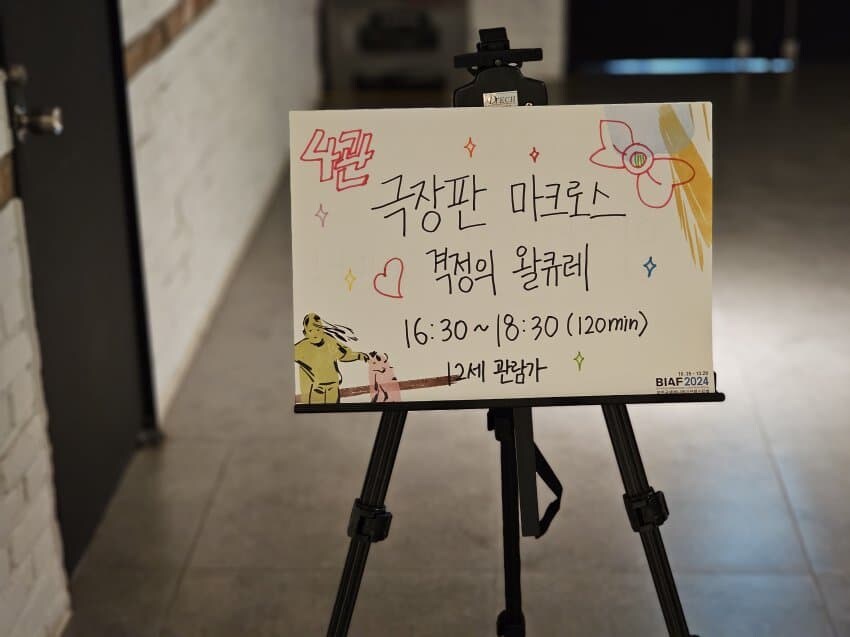 DTECH
4관
극장판 마크로스
격정의 왈큐레
16:30~18:30(120min)
12세 관람가
BIAF2024